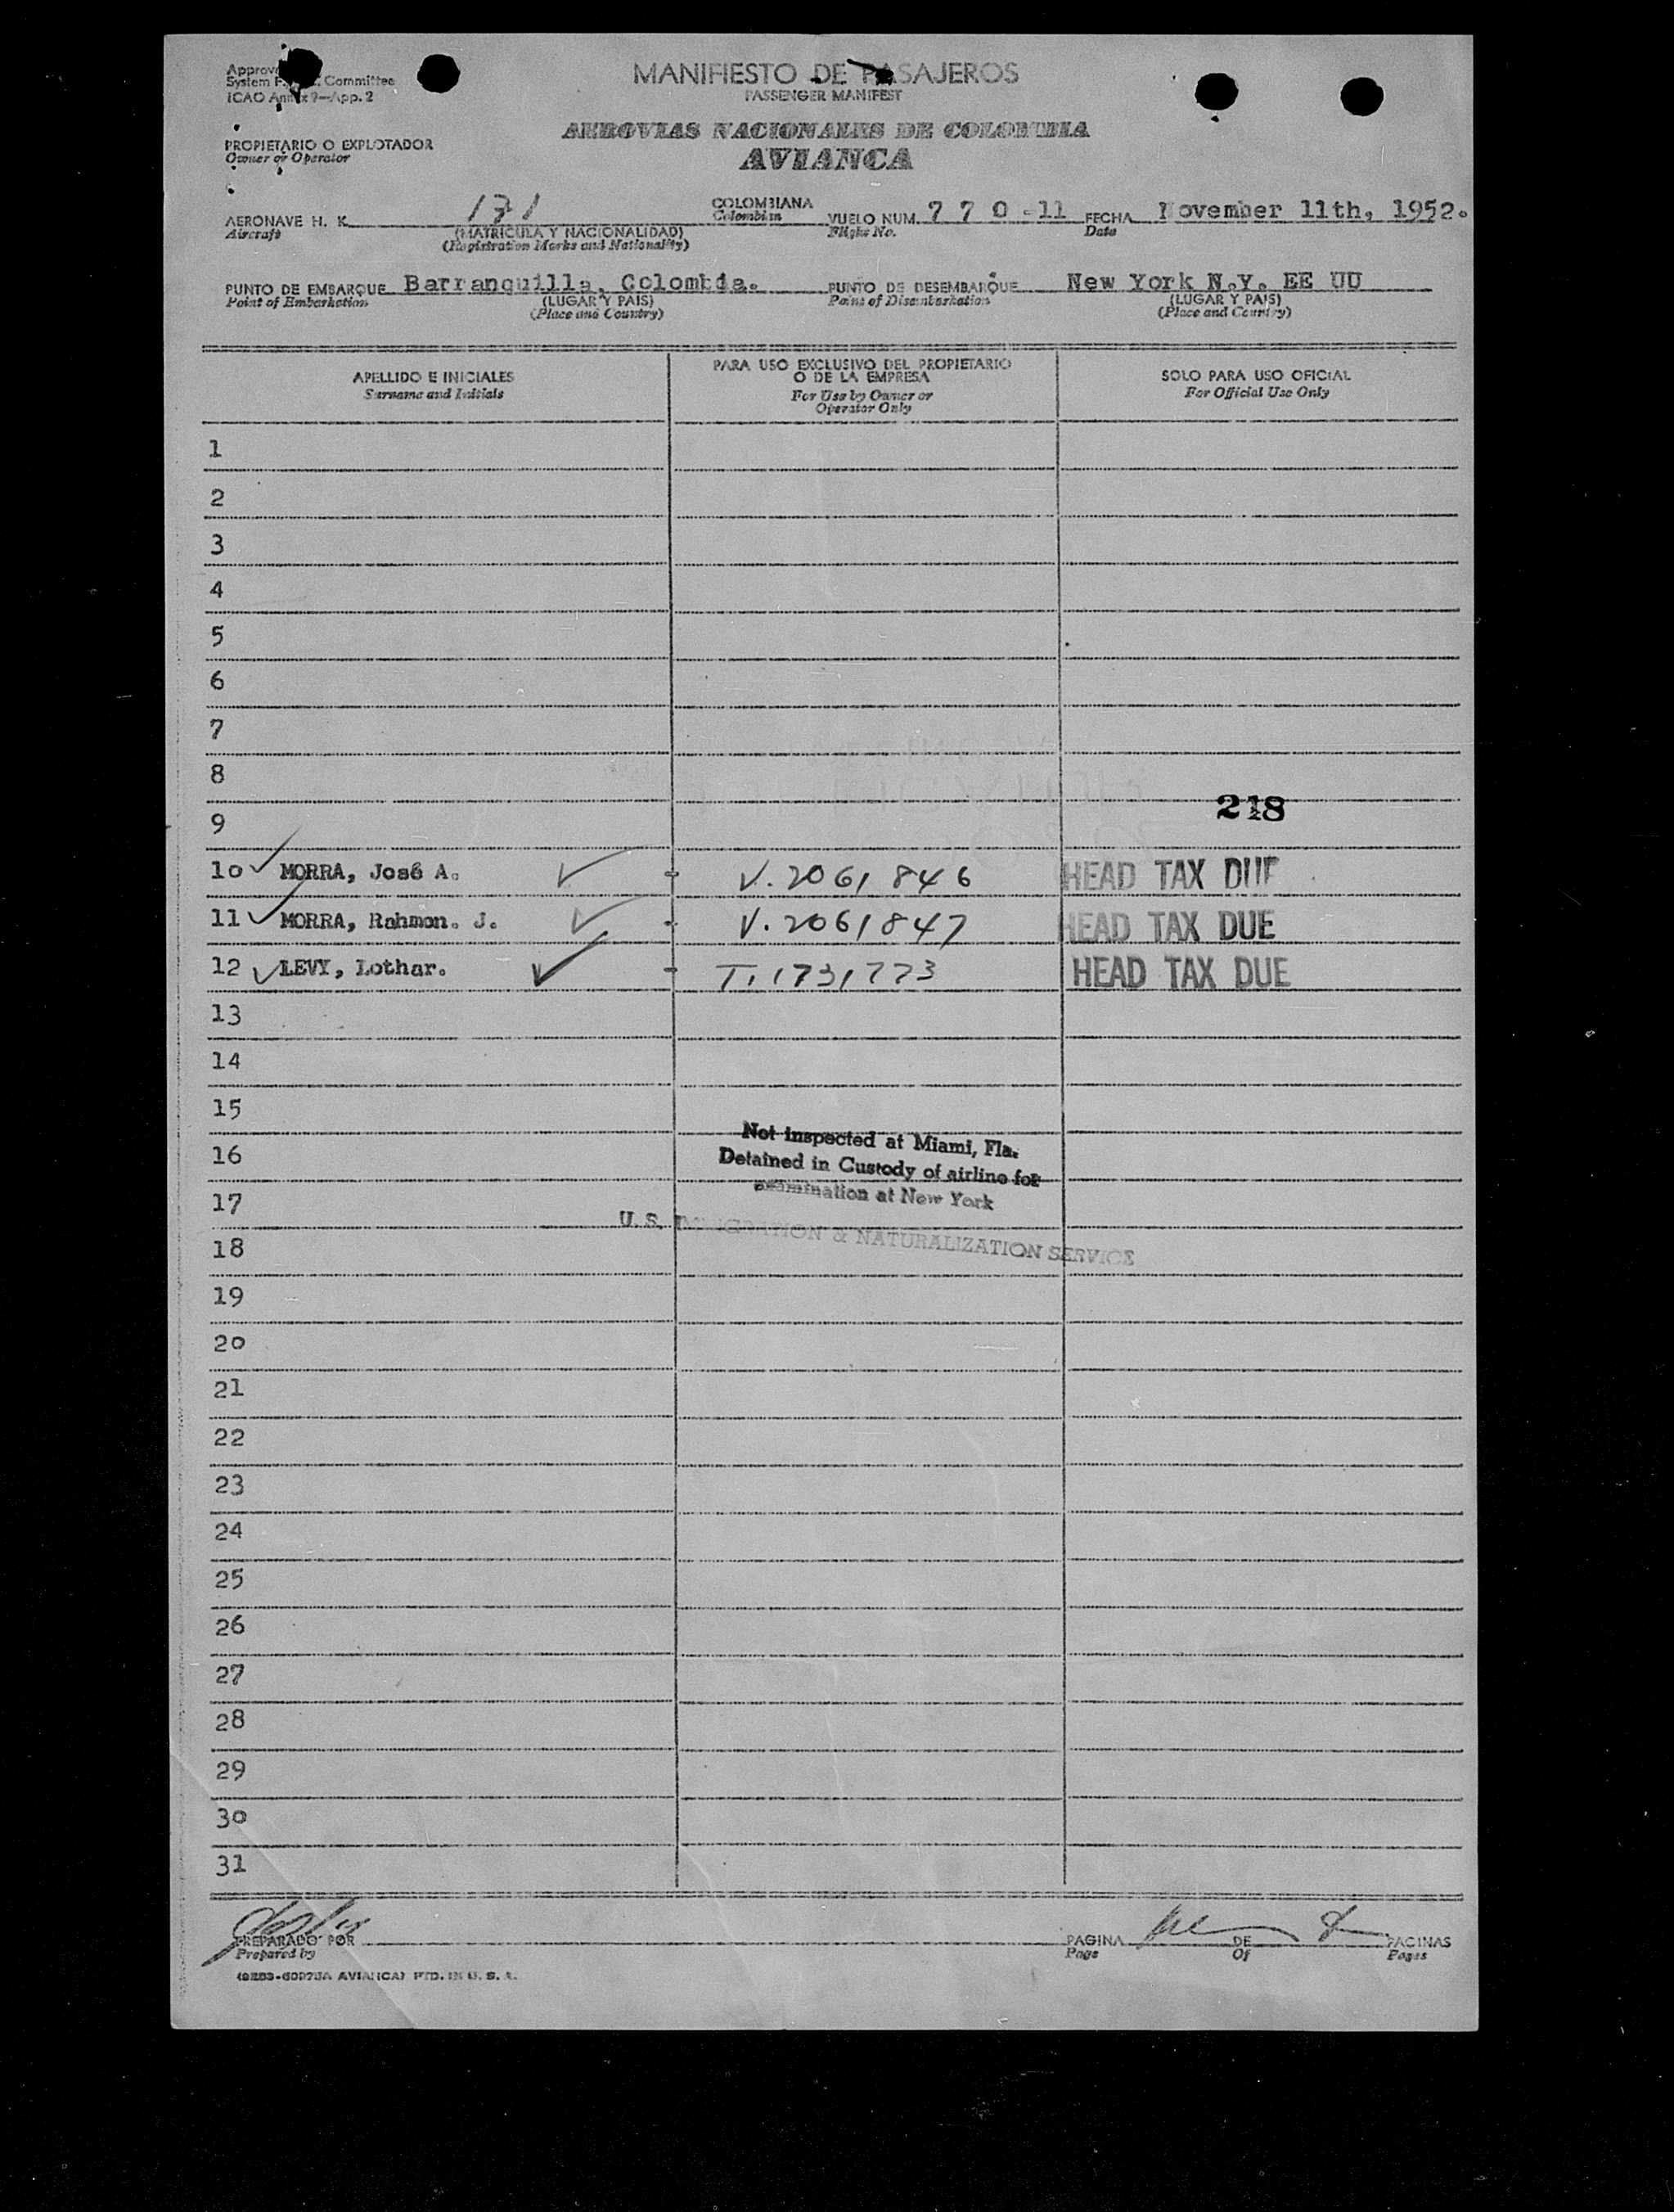 MANIFIESTO DE PASAJEROS
PASSENGER MANIFEST
System Committee
ICAO Annex 9—App. 2
AEROVIAS NACIONALES DE COLOMBIA
AVIANCA
PROPIETARIO O EXPLOTADOR
Owner or Operator
AERONAVE H. K. 171 COLOMBIANA VUELO NUM. 7 7 0 -11 FECHA November 11th, 1952.
Aircraft (MATRICULA Y NACIONALIDAD) Colombian Flight No. Date
(Registration Marks and Nationality)
PUNTO DE EMBARQUE Barranquilla, Colombia. PUNTO DE DESEMBARQUE New York N.Y. EE UU
Point of Embarkation (LUGAR Y PAIS) Point of Disembarkation (LUGAR Y PAIS)
(Place and Country) (Place and Country)
APELLIDO E INICIALES
Surname and Initials
PARA USO EXCLUSIVO DEL PROPIETARIO
O DE LA EMPRESA
For Use by Owner or
Operator Only
SOLO PARA USO OFICIAL
For Official Use Only
1
2
3
4
5
6
7
8
9
10 MORRA, José A. - V. 2061846 HEAD TAX DUE
11 MORRA, Rahmon. J. - V. 2061847 HEAD TAX DUE
12 LEVY, Lothar. - T. 1731773 HEAD TAX DUE
13
14
15
Not inspected at Miami, Fla.
16
Detained in Custody of airline for
examination at New York
17
U. S. IMMIGRATION & NATURALIZATION SERVICE
18
19
20
21
22
23
24
25
26
27
28
29
30
31
PREPARADO POR PAGINA DE PAGINAS
Prepared by Page Of Pages
AVIANCA) PTD. IN U. S. A.